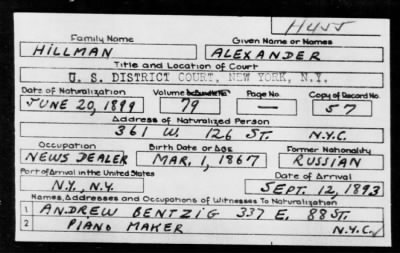 H455
Family Name Given Name or Names
HILLMAN ALEXANDER
Title and Location of Court
U. S. DISTRICT COURT, NEW YORK, N.Y.
Date of Naturalization Volume Page No. Copy of Record No.
JUNE 20, 1899 79 — 57
Address of Naturalized Person
361 W. 126 ST. N.Y.C.
Occupation Birth Date or Age Former Nationality
NEWS DEALER MAR. 1, 1867 RUSSIAN
Port of Arrival in the United States Date of Arrival
N.Y., N.Y. SEPT. 12, 1893
Names, Addresses and Occupations of Witnesses To Naturalization
1 ANDREW BENTZIG 337 E. 88 ST.
2 PIANO MAKER N.Y.C.